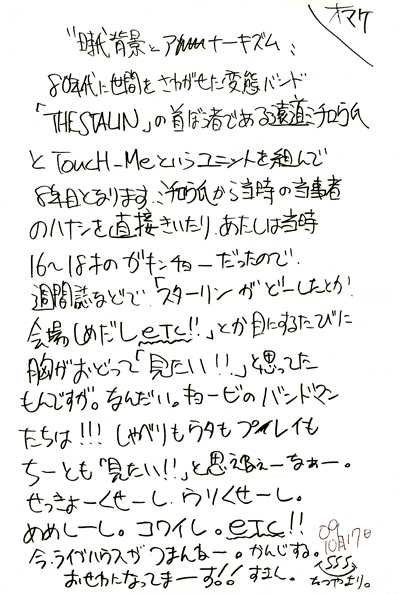 オマケ
"時代背景とアナーキズム"
80年代に世間をさわがせた変態バンド
「THE STALIN」の首ぼ者である遠道ミチロウ氏
とTouCH-Meというユニットを組んで
8年目となります。ミチロウ氏から当時の当事者
のハナシを直接きいたり、あたしは当時
16〜18才のガキンチョーだったので、
週間誌などで「スターリンがどーしたとか、
会場しめだしeTc!!」とか目にするたびに
胸がおどって「見たい!!」と思ってた
もんですが。なんだい。キョービのバンドマン
たちは!!! しゃべりもウタもプレイも
ちーとも「見たい!!」と思えねぇーなぁー。
せっきょーくせーし、ウリくせーし。
めめしーし。コワイし。eTc!!
今、ライブハウスがつまんねー。かんじすね。
おせわになってまーす!! すまん。
09
10月17日